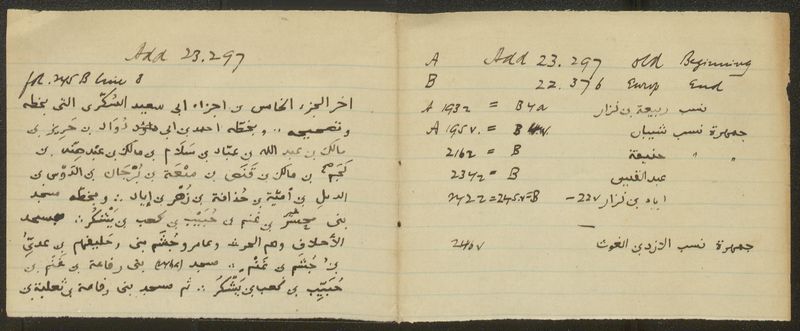 Add 23.297
fol. 245 B line 8
اخر الجزء الخامس من اجزاء ابى سعيد السُكَّرى التى بخطه
وتصحيحه .. وبخطّه احمد بن ابى دُوَاد بن حَرِيز بن
مالك بن عبد الله بن عبّاد بن سَلَام بن مالك بن عبد هند بن
لَخم بن مالك بن قَنَص بن منعَة بن بُرْجَان بن الدَوْس بن
الديل بن اميّة بن حُذافة بن زُهْر بن إياد ∴ وبخطّه مسجد
بنى غنم بن حُبَيِّب بن كعب بن يَشْكُرَ ∴ مسجد
الأحلاف وهم الحرث وعامر وجُشَم بنى وحليفهم بن عدىّ
بن جُشَم بن غَنْم ∴ مسجد بنى رفاعة بن غَنْم بن
حُبَيِّب بن كعب بن يَشْكُرَ ∴ ثم مسجد بنى رفاعة بن ثعلبة بن
A Add 23.297 old Beginning
B 22.376 Europ End
A 193a = B 4a نسب ربيعة بن نزار
A 195v. = B جمهرة نسب شيبان
216a = B " " حنيفة
234a = B عبد القيس
242a = 245v = B اياد بن نزار 22v –
246v جمهرة نسب الازد بن الغوث